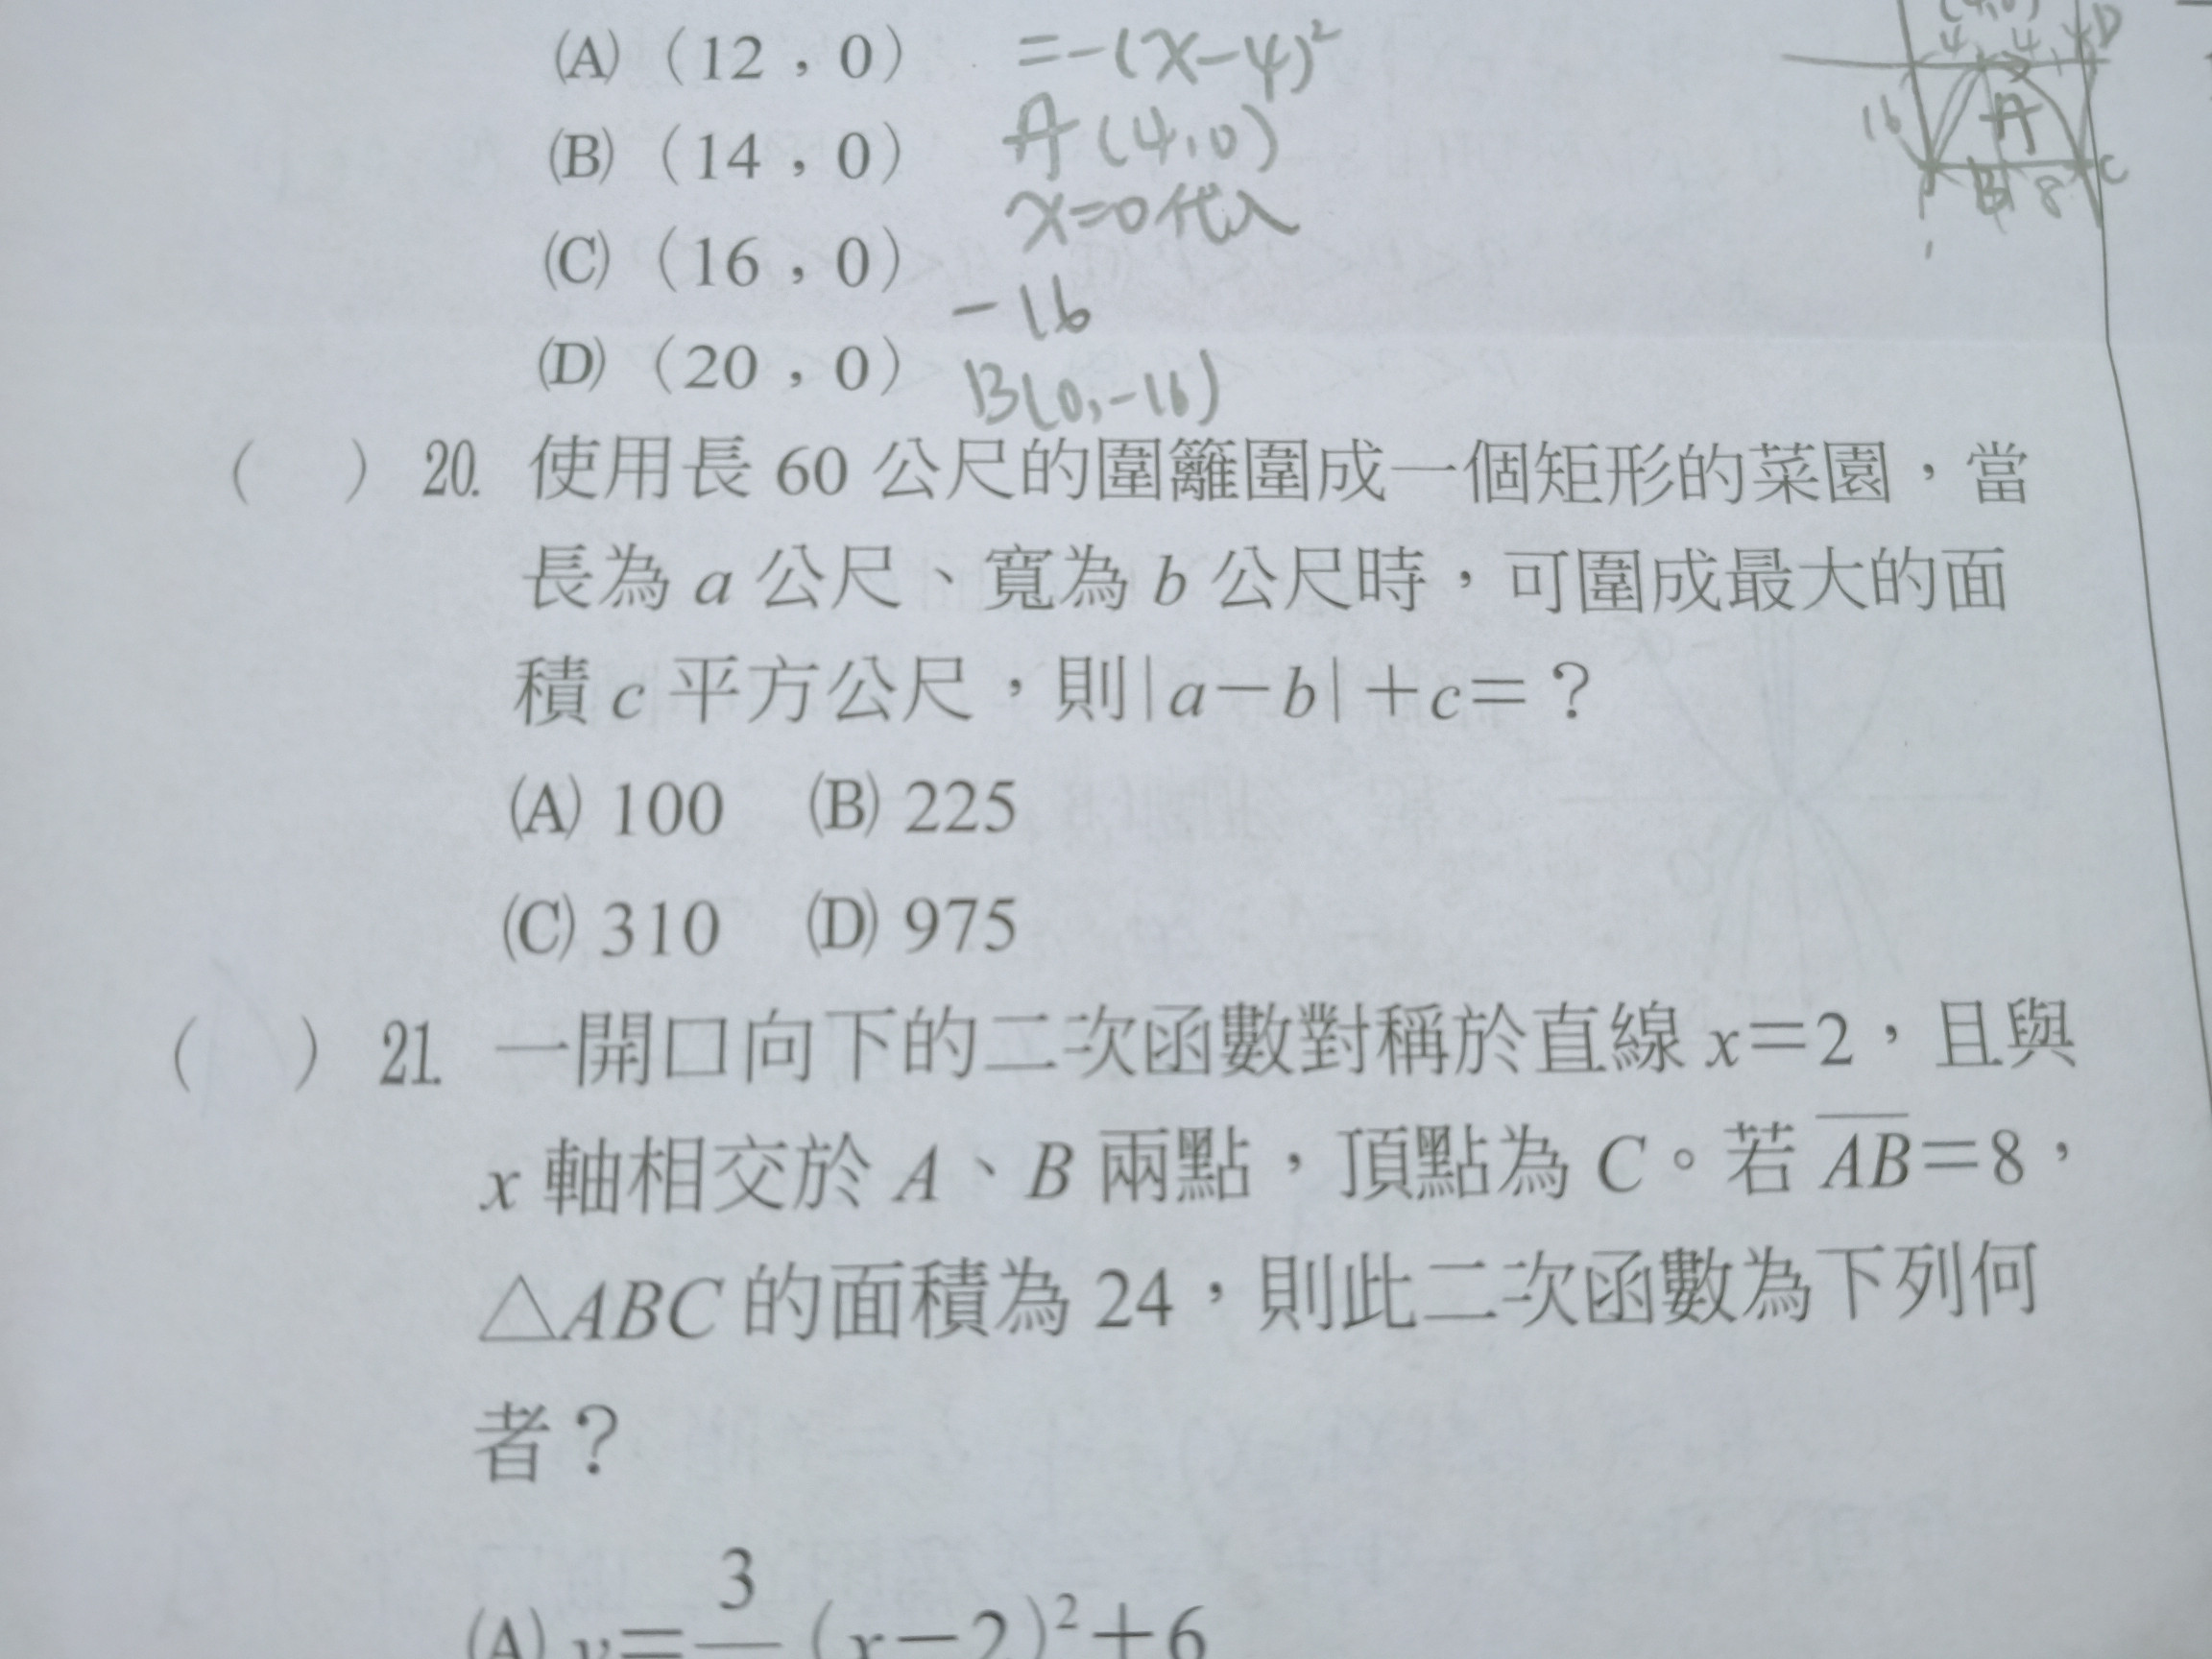 (A)（12，0） =-(x-4)²
(B)（14，0） A(4,0)
(C)（16，0） x=0代入
-16
(D)（20，0） B(0,-16)
4 4 4 D
16 A
B 8 C
(　) 20. 使用長 60 公尺的圍籬圍成一個矩形的菜園，當
長為 a 公尺、寬為 b 公尺時，可圍成最大的面
積 c 平方公尺，則|a－b|＋c＝？
(A) 100 (B) 225
(C) 310 (D) 975
(　) 21. 一開口向下的二次函數對稱於直線 x＝2，且與
x 軸相交於 A、B 兩點，頂點為 C。若 A̅B̅＝8，
△ABC 的面積為 24，則此二次函數為下列何
者？
(A) y＝3 （x－2）²＋6